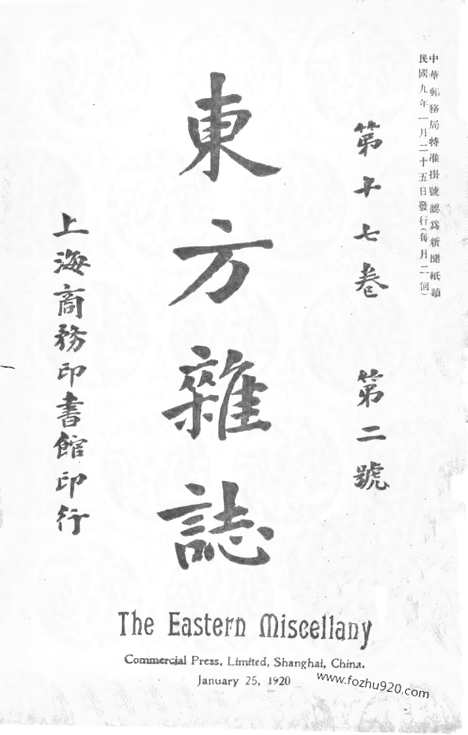 中華郵務局特准掛號認爲新聞紙類
民國九年一月二十五日發行(每月二回)
第十七卷 第二號
東方雜誌
上海商務印書館印行
The Eastern Miscellany
Commercial Press, Limited, Shanghai, China.
January 25, 1920
www.fozhu920.com